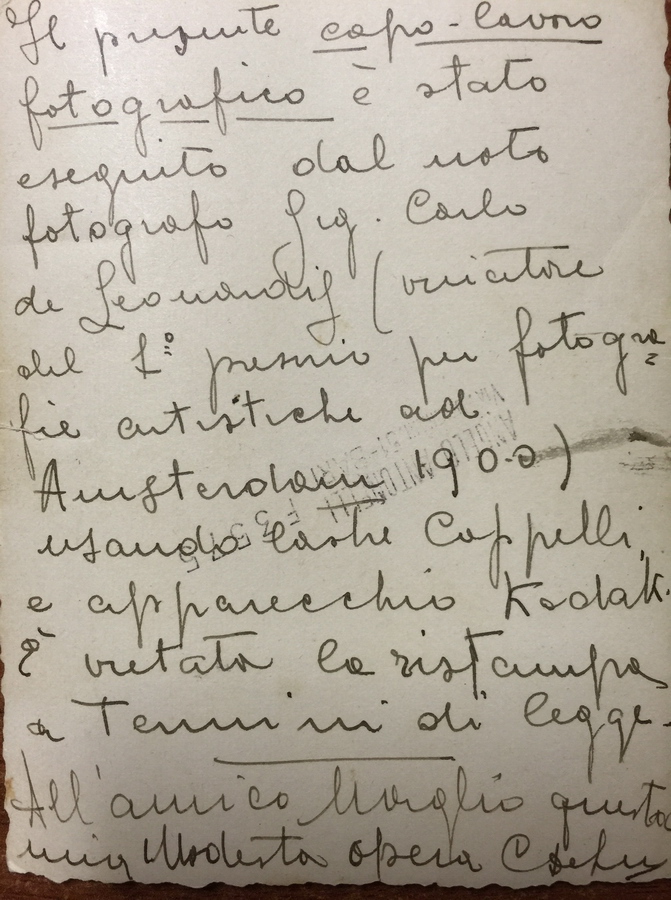 Il presente capo-lavoro
fotografico è stato
eseguito dal noto
fotografo Sig. Carlo
de Leonardis (vincitore
del 1º premio per fotogra=
fie artistiche ad
Amsterdam 1900)
usando lastre Cappelli,
e apparecchio Kodak.
È vietata la ristampa
a Termini di legge.
All'amico questa
mia Modesta opera